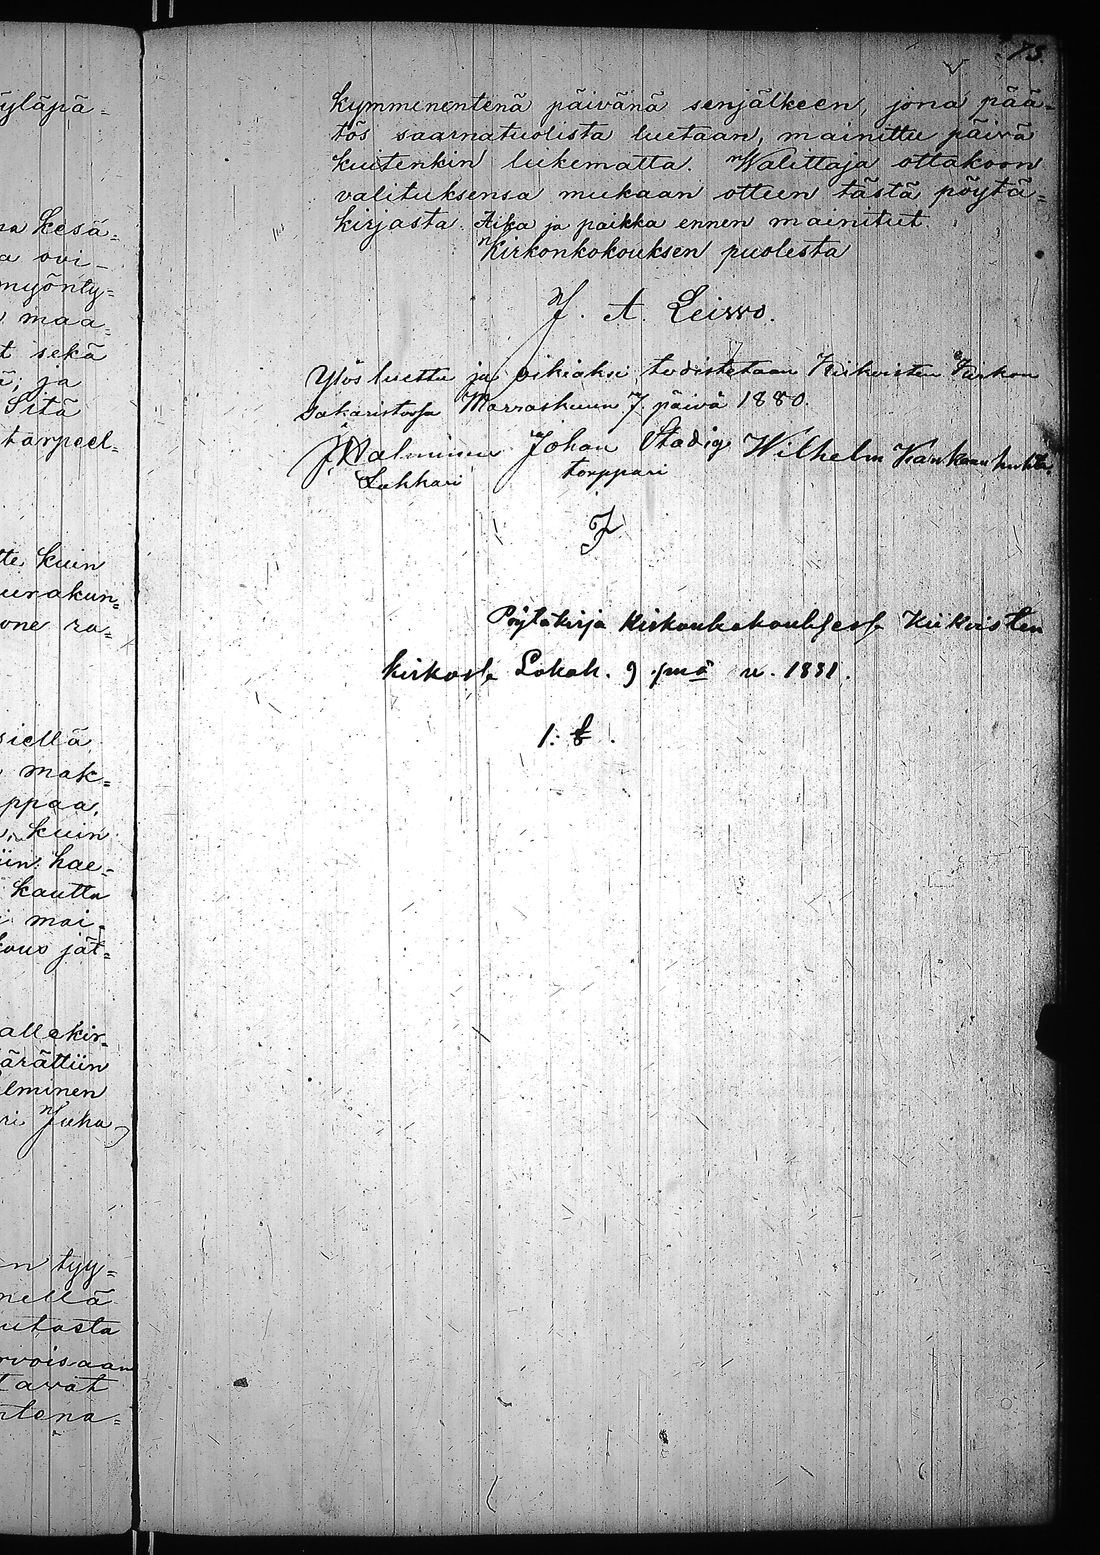 75.
kymmenentenä päivänä senjälkeen, jona pää=
tös saarnatuolista luetaan, mainittu päivä
kuitenkin lukematta. Walittaja ottakoon
valituksensa mukaan otteen tästä pöytä=
kirjasta. Aika ja paikka ennen mainitut
Kirkonkokouksen puolesta
J. A. Leisso.
Ylös luettu ja oikiaksi todistetaan Kiikoisten Kirkon
sakaristossa Marraskuun 7 päivä 1880.
J. Walminen Johan Stadig Wilhelm Kankaanhuhta
Lukkari torppari
Pöytäkirja Kirkonkokouksesta Kiikoisten
kirkosta Lokak. 9 pnä v. 1881.
1. §.
yläpä=
kesä=
ovi-
myönty=
maa=
sekä
ja
Sitä
tarpeel=
kuin
urakun=
one ra=
siellä
mak=
ppaa,
kuin
hae=
kautta
mai=
kous jät=
allekir=
ärättiin
lminen
ri Juha
n tyy=
nellä
utosta
rvoisaan
tavat
ntenä=